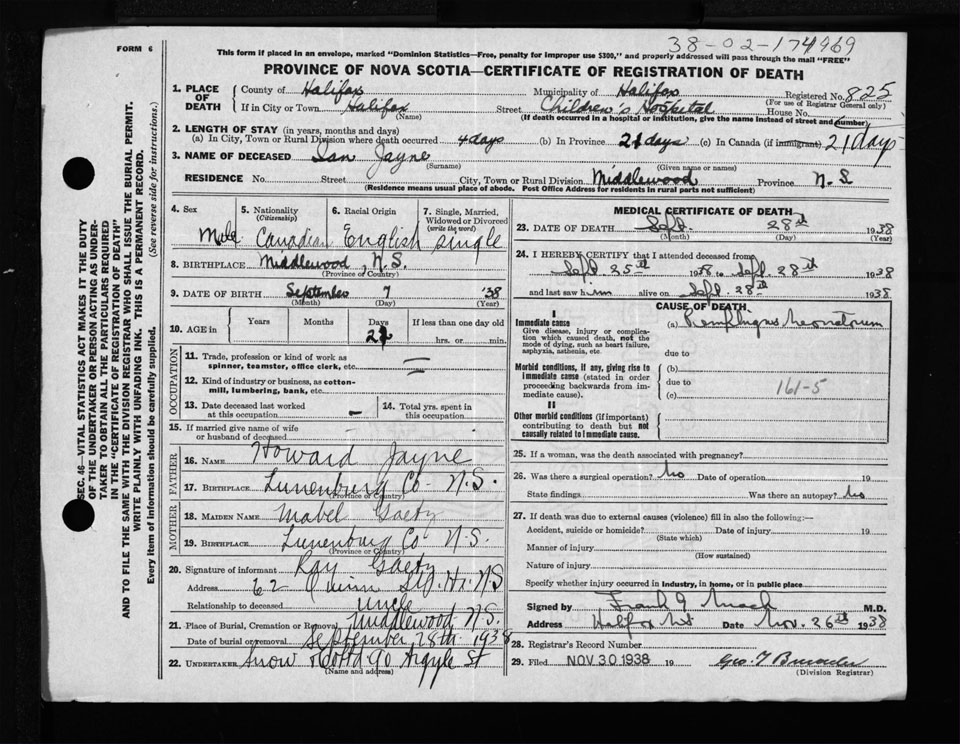 38-02-174969
FORM 6
This form if placed in an envelope, marked "Dominion Statistics—Free, penalty for improper use $300," and properly addressed will pass through the mail "FREE"
PROVINCE OF NOVA SCOTIA—CERTIFICATE OF REGISTRATION OF DEATH
1. PLACE OF DEATH
County of Halifax Municipality of Halifax Registered No. 825
(For use of Registrar General only)
If in City or Town Halifax Street Children's Hospital House No.
(Name) (If death occurred in a hospital or institution, give the name instead of street and number)
2. LENGTH OF STAY (in years, months and days)
(a) In City, Town or Rural Division where death occurred 4 days (b) In Province 21 days (c) In Canada (if immigrant) 21 days
3. NAME OF DECEASED Ian Jayne
(Surname) (Given name or names)
RESIDENCE No. Street City, Town or Rural Division Middlewood Province N.S.
(Residence means usual place of abode. Post Office Address for residents in rural parts not sufficient)
4. Sex Male
5. Nationality (Citizenship) Canadian
6. Racial Origin English
7. Single, Married, Widowed or Divorced (write the word) single
8. BIRTHPLACE Middlewood, N.S.
(Province or Country)
9. DATE OF BIRTH September 7 '38
(Month) (Day) (Year)
10. AGE in Years Months Days 21 If less than one day old
hrs. or min.
OCCUPATION
11. Trade, profession or kind of work as spinner, teamster, office clerk, etc. —
12. Kind of industry or business, as cotton-mill, lumbering, bank, etc. —
13. Date deceased last worked at this occupation —
14. Total yrs. spent in this occupation
15. If married give name of wife or husband of deceased
FATHER
16. NAME Howard Jayne
17. BIRTHPLACE Lunenburg Co- N.S.
(Province or Country)
MOTHER
18. MAIDEN NAME Mabel Gaetz
19. BIRTHPLACE Lunenburg Co N.S.
(Province or Country)
20. Signature of informant Ray Gaetz
Address 62 Quinn Hx. N.S
Relationship to deceased uncle
21. Place of Burial, Cremation or Removal Middlewood N.S.
Date of burial or removal September 28th 1938
22. UNDERTAKER Snow & Co Ltd 90 Argyle St
(Name and address)
MEDICAL CERTIFICATE OF DEATH
23. DATE OF DEATH Sept. 28th 1938
(Month) (Day) (Year)
24. I HEREBY CERTIFY that I attended deceased from
Sept 25th 1938 to Sept. 28th 1938
and last saw him alive on Sept. 28th 1938
CAUSE OF DEATH
I
Immediate cause
Give disease, injury or complication which caused death, not the mode of dying, such as heart failure, asphyxia, asthenia, etc.
(a) Pemphigus Neonatorum
due to
Morbid conditions, if any, giving rise to immediate cause (stated in order proceeding backwards from immediate cause).
(b)
due to 161-5
(c)
II
Other morbid conditions (if important) contributing to death but not causally related to immediate cause.
25. If a woman, was the death associated with pregnancy?
26. Was there a surgical operation? No Date of operation 19
State findings Was there an autopsy? No
27. If death was due to external causes (violence) fill in also the following:—
Accident, suicide or homicide? Date of injury 19
(State which)
Manner of injury
(How sustained)
Nature of injury
Specify whether injury occurred in industry, in home, or in public place
Signed by Frank G Mack M.D.
Address Halifax NS Date Nov. 26th 1938
28. Registrar's Record Number
29. Filed NOV 30 1938 19
(Division Registrar)
SEC. 46—VITAL STATISTICS ACT MAKES IT THE DUTY
OF THE UNDERTAKER OR PERSON ACTING AS UNDER-
TAKER TO OBTAIN ALL THE PARTICULARS REQUIRED
IN THE "CERTIFICATE OF REGISTRATION OF DEATH"
AND TO FILE THE SAME WITH THE DIVISION REGISTRAR WHO SHALL ISSUE THE BURIAL PERMIT.
WRITE PLAINLY WITH UNFADING INK. THIS IS A PERMANENT RECORD.
Every item of information should be carefully supplied. (See reverse side for instructions.)